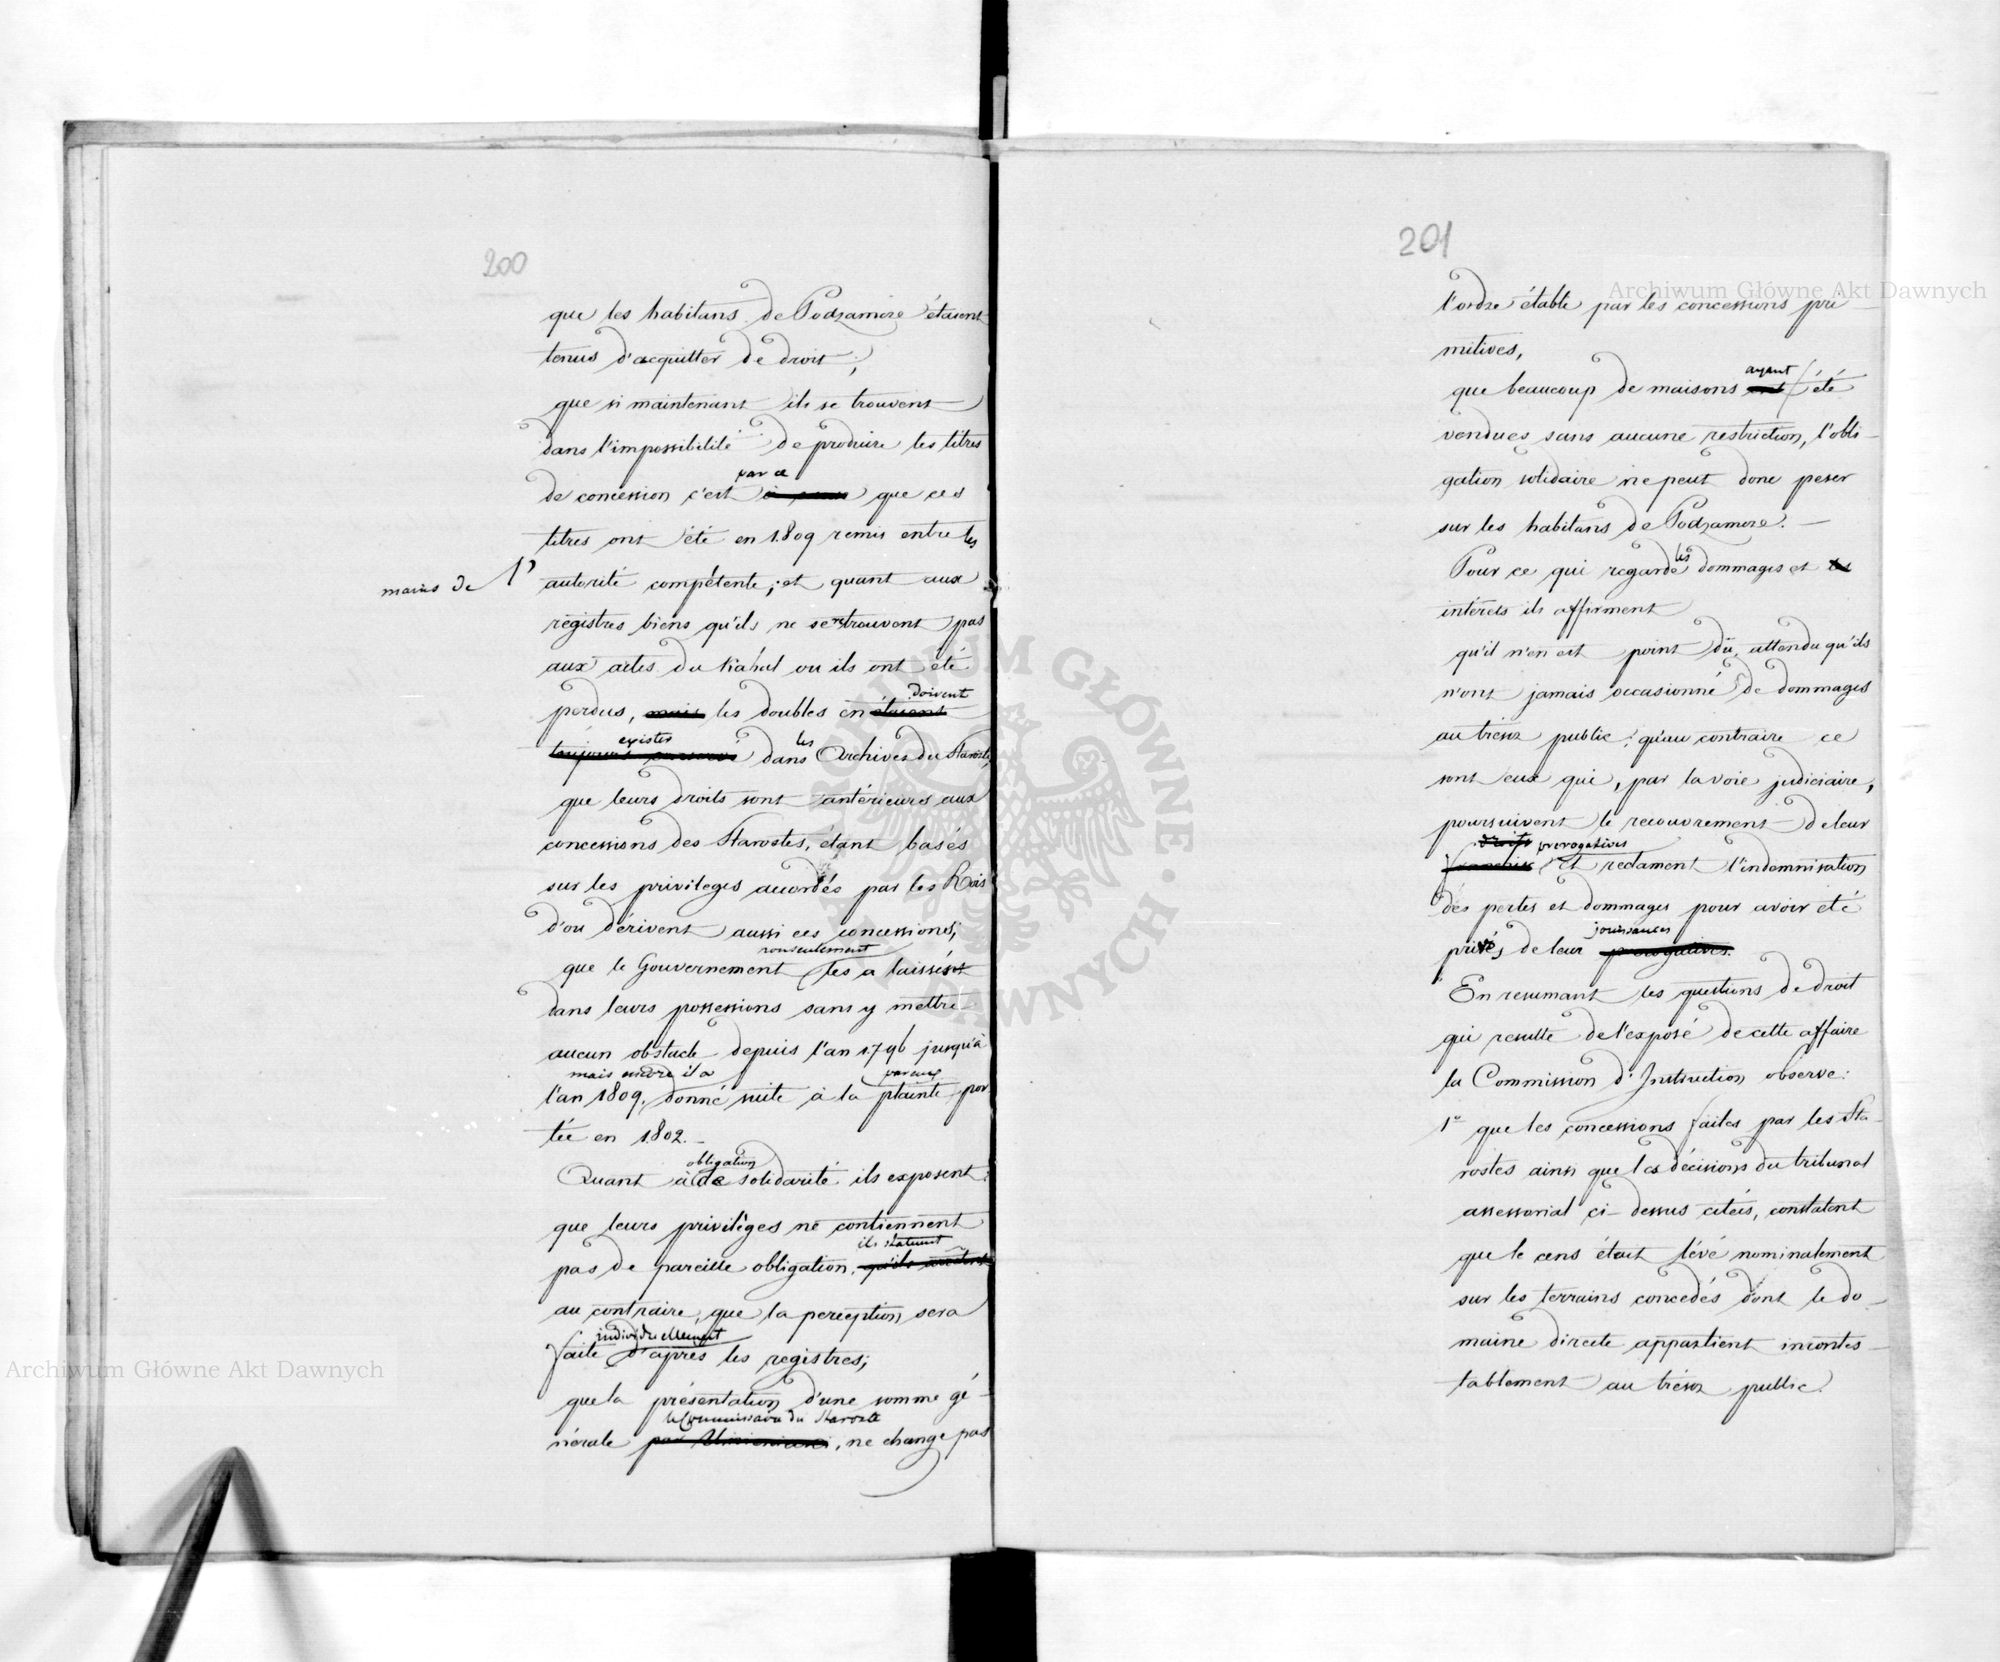 200
que les habitans de Podzamcze étaient
tenus d'acquitter de droit;
que si maintenant ils se trouvent
dans l'impossibilité de produire les titres
par ce
de concession c'est que ces
titres ont été en 1809 remis entre les
mains de l'
autorité compétente; et quant aux
régistres biens qu'ils ne se retrouvent pas
aux actes du Kahal ou ils ont été
doivent
perdus, mais les doubles en étaient
exister les
toujours conservé dans Archives du Staroste,
que leurs droits sont antérieures aux
concessions des Starostes, étant basés
sur les privileges accordés par les Rois
d'ou dérivent aussi ces concessions;
nonseulement
que le Gouvernement les a laissés
dans leurs possessions sans y mettre
aucun obstacle depuis l'an 1796 jusqu'à
mais encore il a par eux
l'an 1809, donné suite à la plainte por
tée en 1802.
obligation
Quant à la solidarité ils exposent:
que leurs privilèges ne contiennent
ils statuent
pas de pareille obligation, qu'ils
au contraire, que la perception sera
individuellement
faite d'après les registres;
que la présentation d'une somme gé
le Commissaire du Staroste
nérale par, ne change pas
201
l'ordre établi par les concessions pri
mitives,
ayant
que beaucoup de maisons ont été
vendues sans aucune restriction, l'obli-
gation solidaire ne peut donc peser
sur les habitans de Podzamcze. —
les
Pour ce qui regarde dommages et
intérets ils affirment
qu'il n'en est point dû, attendu qu'ils
n'ont jamais occasionné de dommages
au trésor public; qu'au contraire ce
sont eux qui, par la voie judiciaire,
poursuivent le recouvrement de leur
droits prerogatives
franchise et reclament l'indemnisation
des pertes et dommages pour avoir été
jouissances
privés de leur prerogatives.
En resumant les questions de droit
qui resulte de l'exposé de cette affaire
la Commission d'Instruction observe:
1° que les concessions faites par les Sta-
rostes ainsi que les décisions du tribunal
assessorial ci-dessus citées, constatent
que le cens était lévé nominalement
sur les terrains concedés dont le do-
maine directe appartient incontes-
tablement au trésor public.
Archiwum Główne Akt Dawnych
Archiwum Główne Akt Dawnych
ARCHIWUM GŁÓWNE AKT DAWNYCH